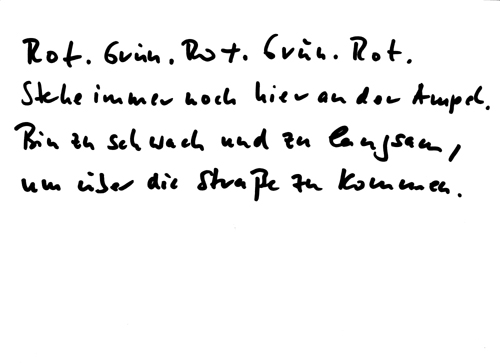 Rot. Grün. Rot. Grün. Rot.
Stehe immer noch hier an der Ampel.
Bin zu schwach und zu langsam,
um über die Straße zu kommen.